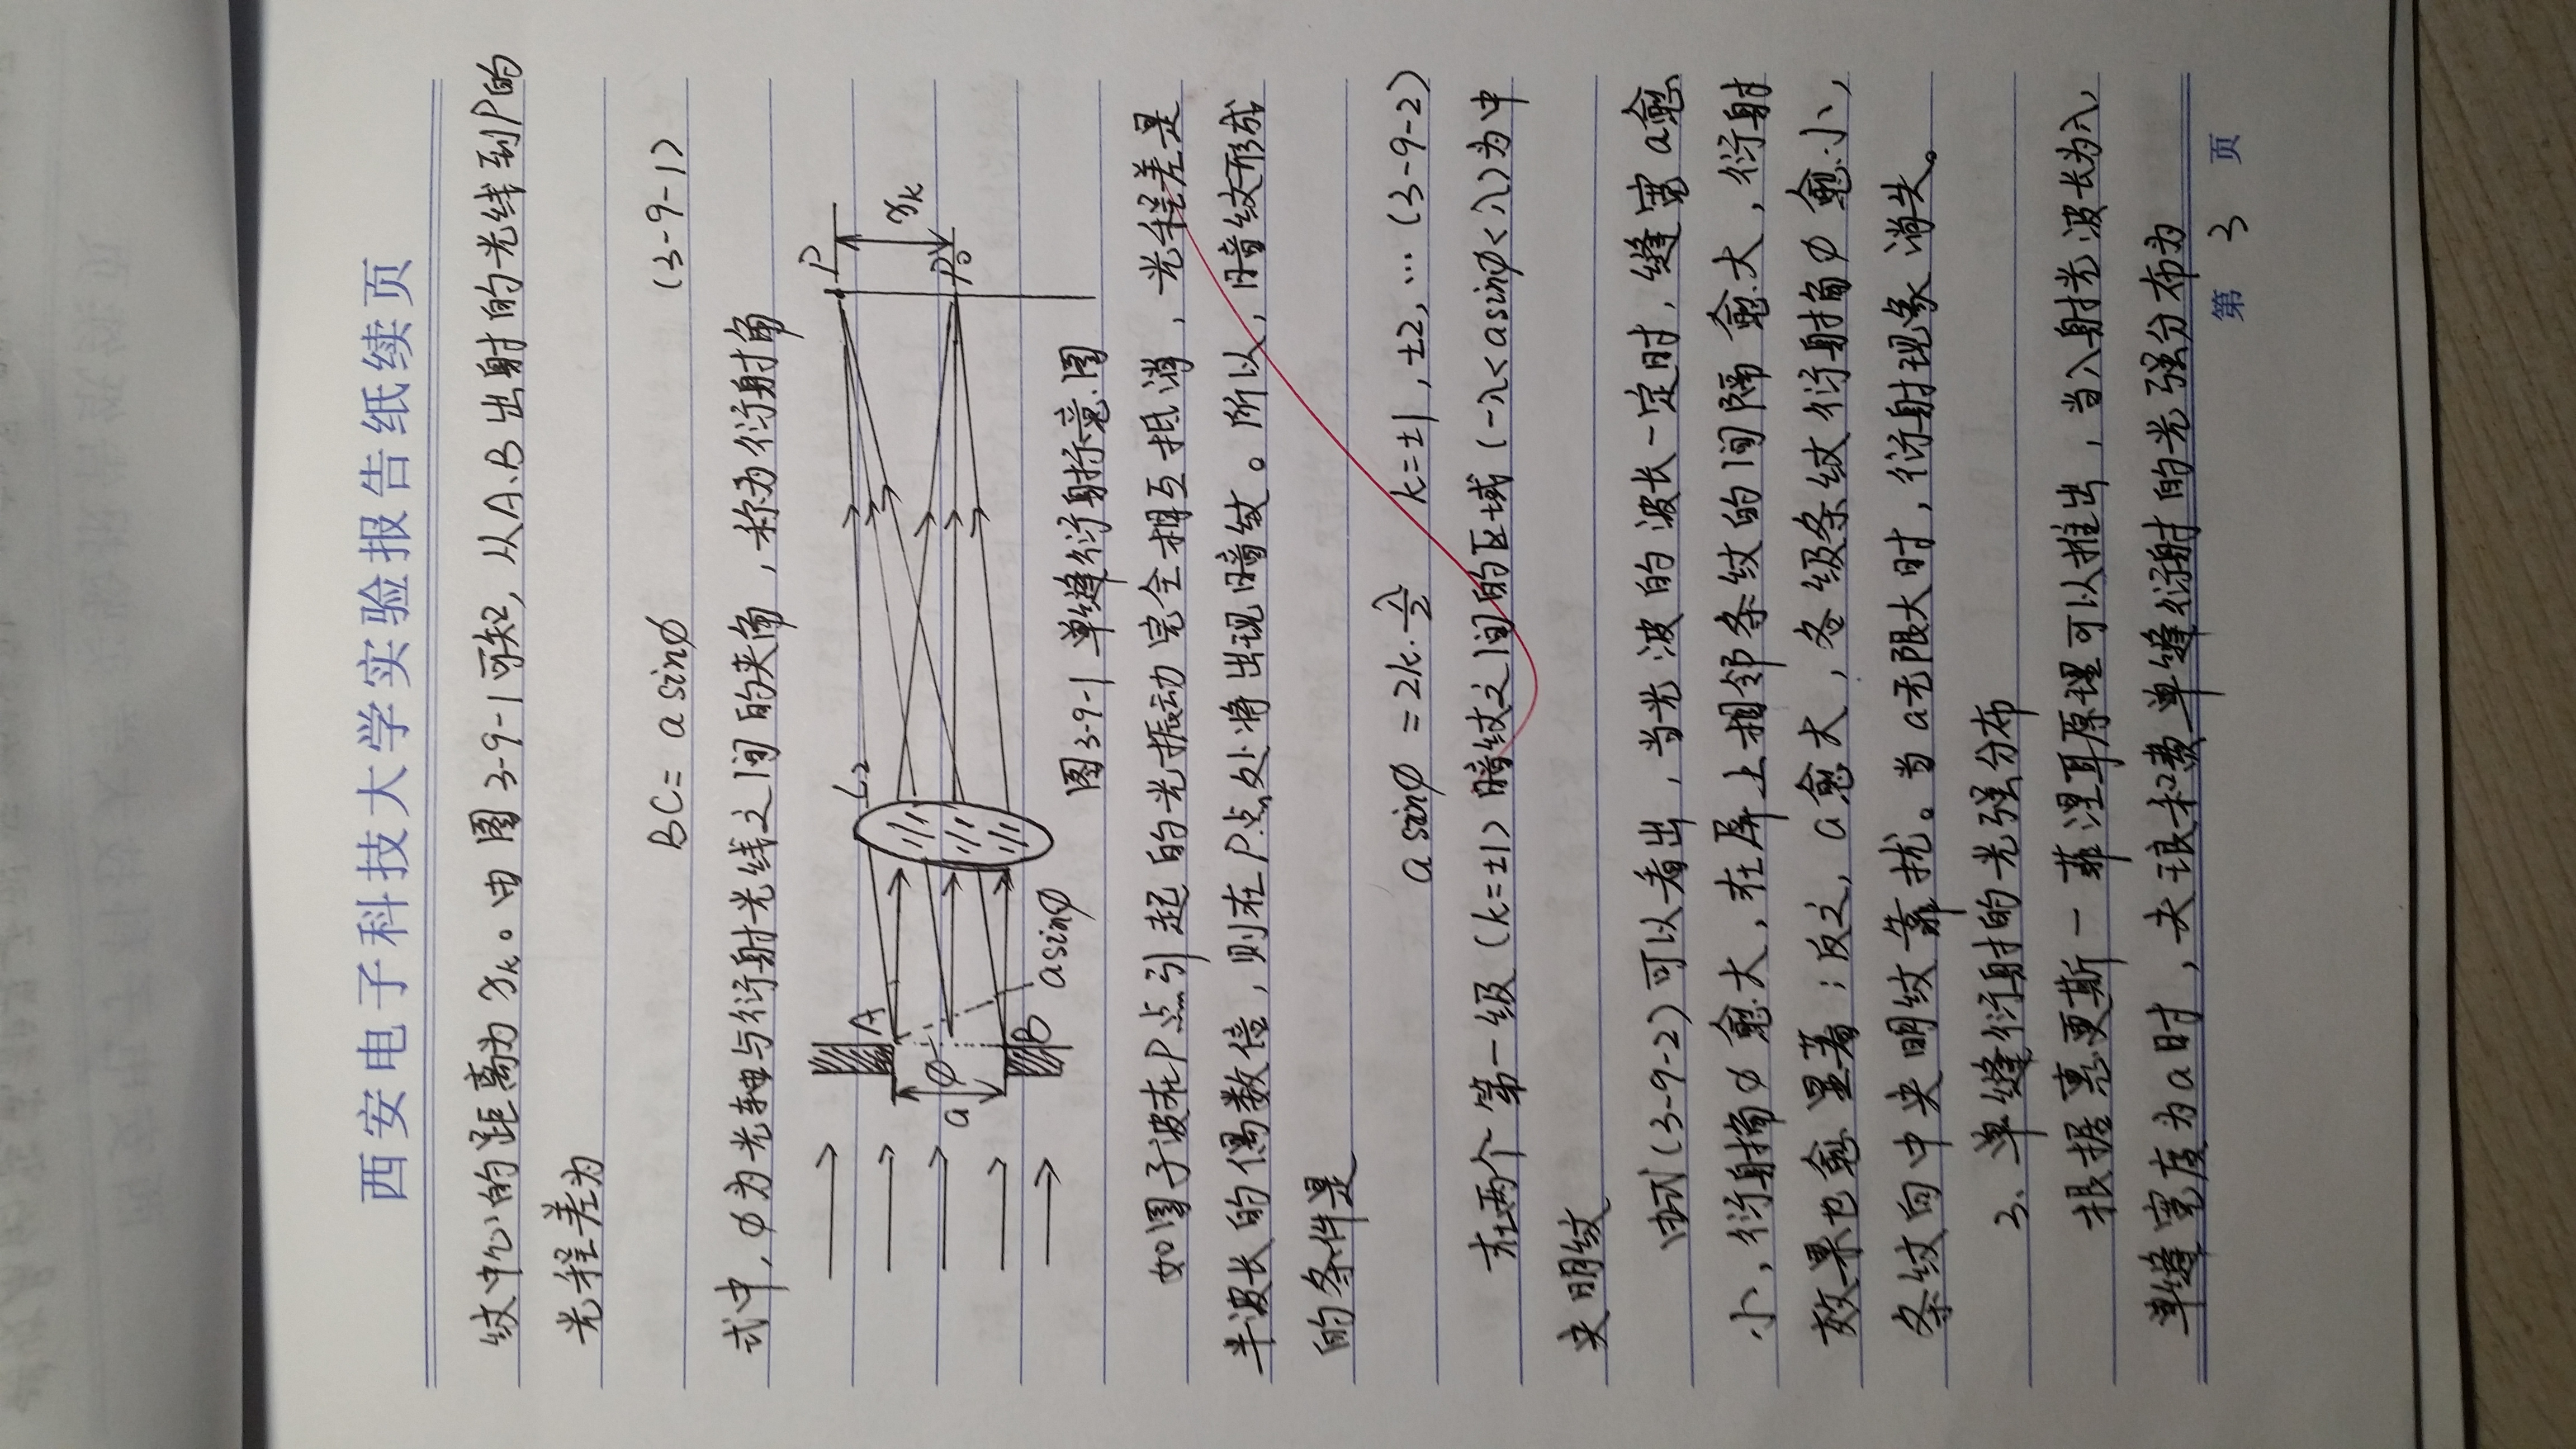 西安电子科技大学实验报告纸续页
纹中心的距离为 xₖ。由图 3-9-1 可知, 从 A、B 出射的光线到 P 的
光程差为
BC = a sinφ (3-9-1)
式中, φ为光轴与衍射光线之间的夹角, 称为衍射角
P
L₂
A
xₖ
φ
a
P₀
B
a sinφ
图3-9-1 单缝衍射示意图
如图子波在P点引起的光振动完全相互抵消, 光程差是
半波长的偶数倍, 则在P点处将出现暗纹。所以, 暗纹形成
的条件是
a sinφ = 2k·λ/2 k=±1, ±2, … (3-9-2)
在两个第一级 (k=±1) 暗纹之间的区域 (-λ<a sinφ<λ) 为中
央明纹
由式(3-9-2)可以看出, 当光波的波长一定时, 缝宽a愈
小, 衍射角φ愈大, 在屏上相邻条纹的间隔愈大, 衍射
效果也愈显著; 反之, a愈大, 各级条纹衍射角φ愈小,
条纹向中央明纹靠扰。当a无限大时, 衍射现象消失。
3、单缝衍射的光强分布
根据惠更斯-菲涅耳原理可以推出, 当入射光波长为λ,
单缝宽度为a时, 夫琅和费单缝衍射的光强分布为
第 3 页